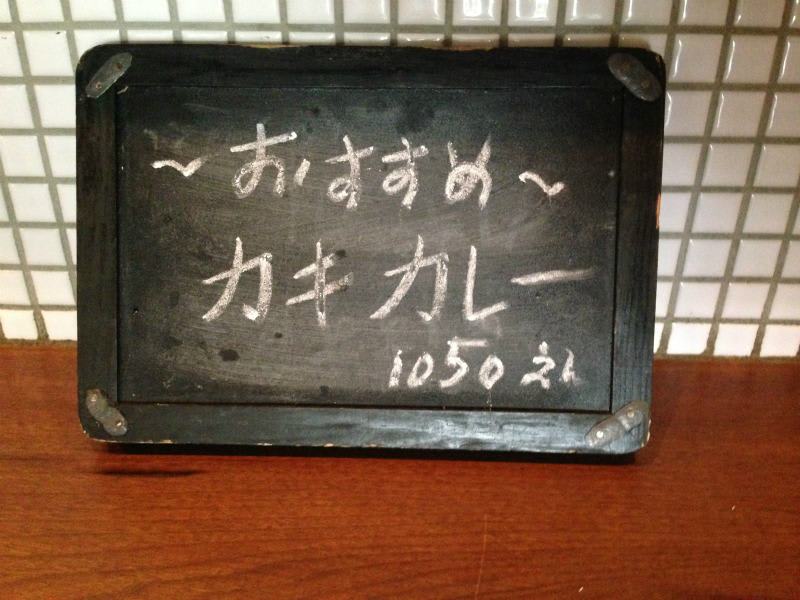 ～おすすめ～
カキカレー
1050えん